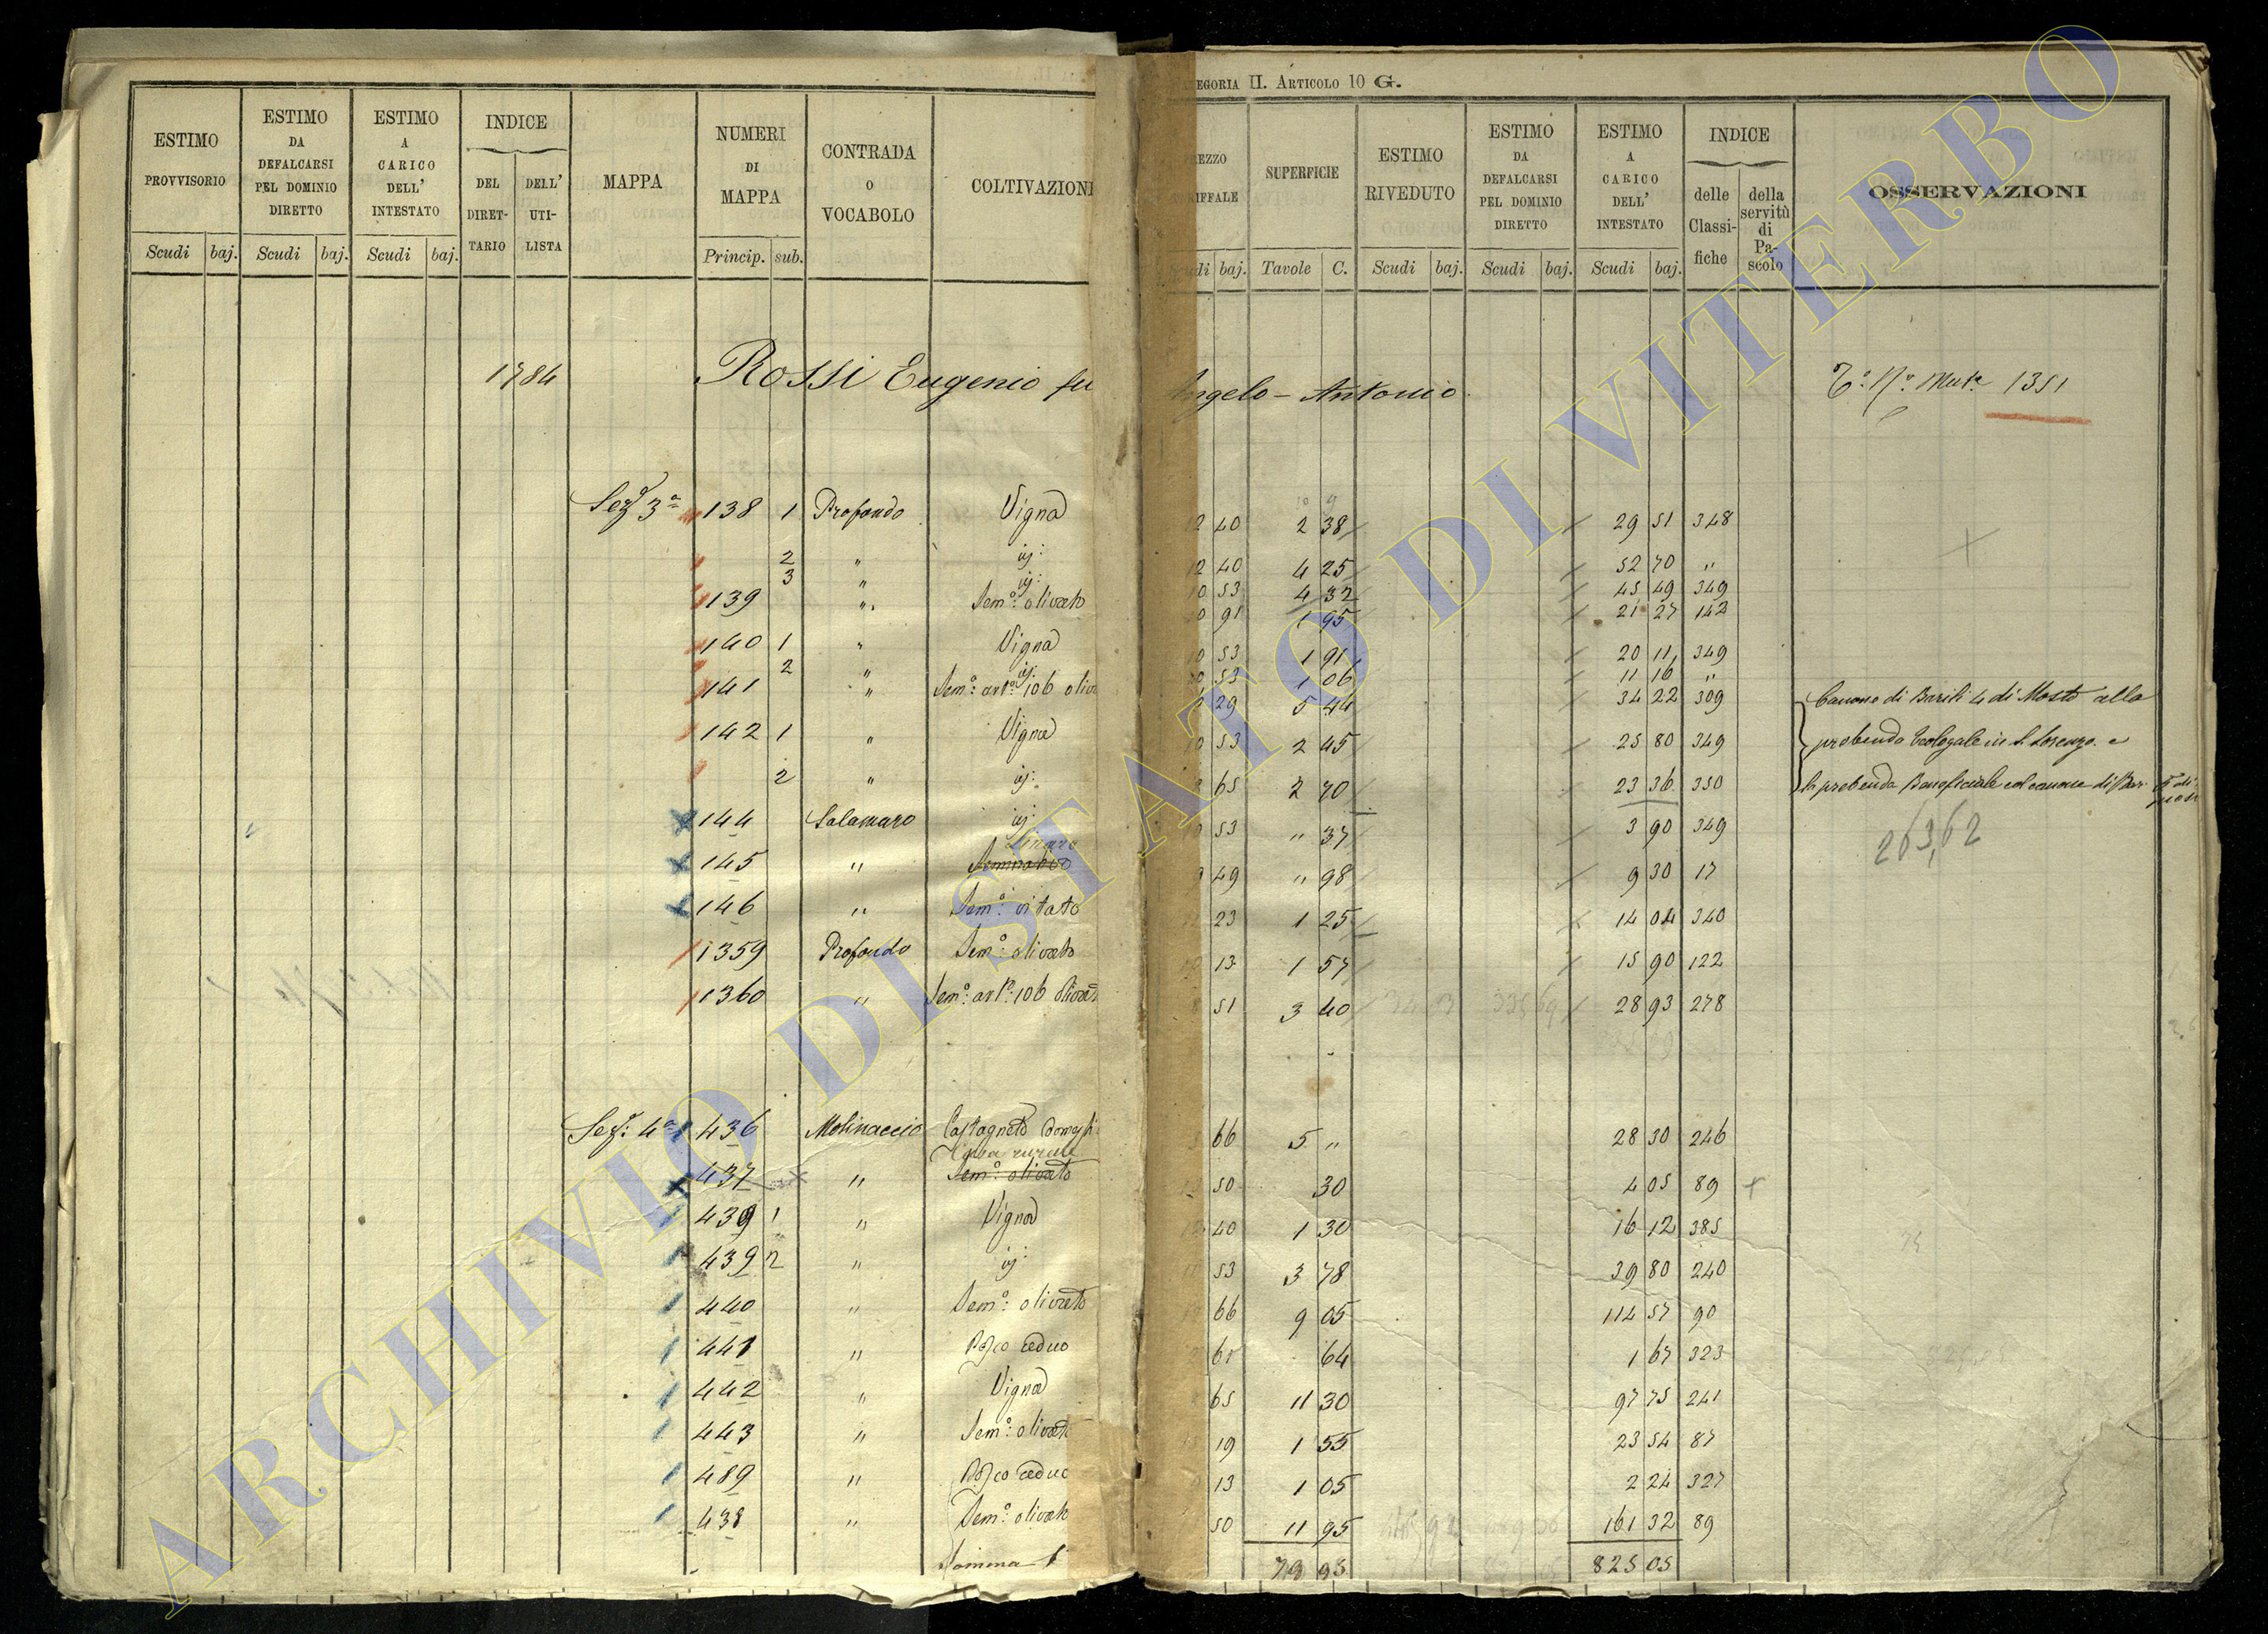 CATEGORIA II. ARTICOLO 10 G.
ESTIMO PROVVISORIO
ESTIMO DA DEFALCARSI PEL DOMINIO DIRETTO
ESTIMO A CARICO DELL' INTESTATO
INDICE
DEL DIRET-TARIO
DELL' UTI-LISTA
MAPPA
NUMERI DI MAPPA
CONTRADA O VOCABOLO
COLTIVAZIONI
Scudi baj. Scudi baj. Scudi baj. Princip. sub.
SUPERFICIE
ESTIMO RIVEDUTO
ESTIMO DA DEFALCARSI PEL DOMINIO DIRETTO
ESTIMO A CARICO DELL' INTESTATO
INDICE
delle Classi-fiche
della servitù di Pa-scolo
OSSERVAZIONI
baj. Tavole C. Scudi baj. Scudi baj. Scudi baj.
1784 Rossi Eugenio fu Angelo-Antonio 1351
Sez.e 3a 138 1 Profondo Vigna 12 40 2 38 29 51 348
2 " id: 12 40 4 25 52 70 "
3 " id: 10 53 4 32 45 49 349
139 " Sem.o: olivato 91 1 95 21 27 142
140 1 " Vigna 10 53 1 91 20 11 349
2 " id: 53 1 06 11 16 "
141 " Sem.o: art.o: 106 oliv 29 5 44 34 22 309
Canone di Barili 4 di Mosto alla
142 1 " Vigna 10 53 2 45 25 80 349
prebenda Teologale in S. Lorenzo e
2 " id: 65 2 70 23 36 350
la prebenda Beneficiale col canone di Bar.
144 Salamaro id: 53 " 37 3 90 349
263,62
145 " Seminativo 49 " 98 9 30 17
146 " Sem.o: vitato 23 1 25 14 04 340
1359 Profondo Sem.o: olivato 13 1 57 15 90 122
1360 " Sem.o: art.o: 106 olivat 51 3 40 28 93 278
Sez.e: 4a 436 Molinaccio Castagneto domest 66 5 " 28 30 246
Casa rurale
437 " Sem.o: olivato 50 30 4 05 89
439 1 " Vigna 40 1 30 16 12 385
439 2 " id: 53 3 78 39 80 240
440 " Sem.o: olivato 66 9 05 114 57 90
441 " Bosco ceduo 61 64 1 67 323
442 " Vigna 65 11 30 97 75 241
443 " Sem.o: olivato 19 1 55 23 54 87
489 " Bosco ceduo 13 1 05 2 24 327
438 " Sem.o: olivato 50 11 95 161 32 89
Somma 79 95 825 05
ARCHIVIO DI STATO DI VITERBO